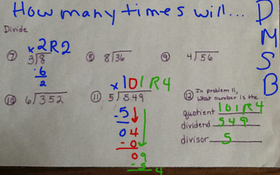 How many times will...
D
M
S
B
Divide
x2R2
⑦ 3)8
-6
2
⑧ 8)36
⑨ 4)56
⑩ 6)352
x101R4
⑪ 5)549
-5
04
-0
09
-5
4
⑫ In problem 11,
what number is the
quotient 101R4
dividend 549
divisor 5